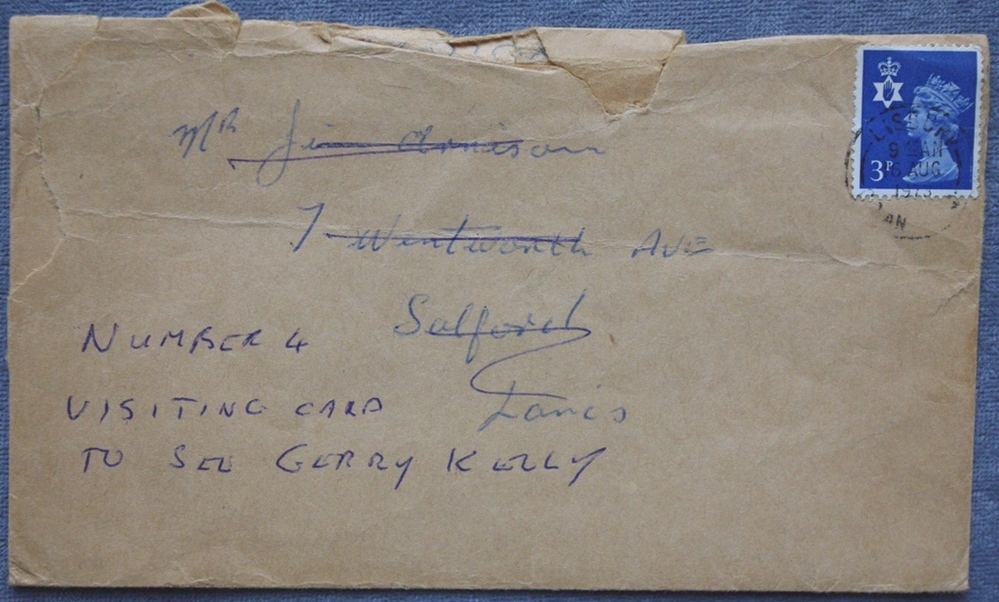 Mr Jim Arnison
7 Wentworth AVE
Salford
Lancs
NUMBER 4
VISITING CARD
TO SEE GERRY KELLY
3P
LISBURN
9 AM
AUG
1973